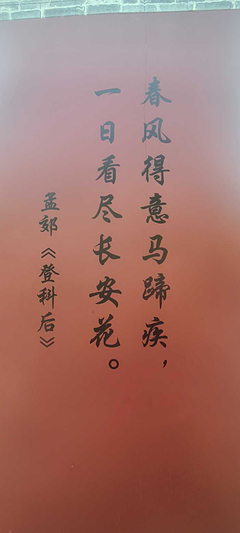 春风得意马蹄疾，
一日看尽长安花。
孟郊《登科后》